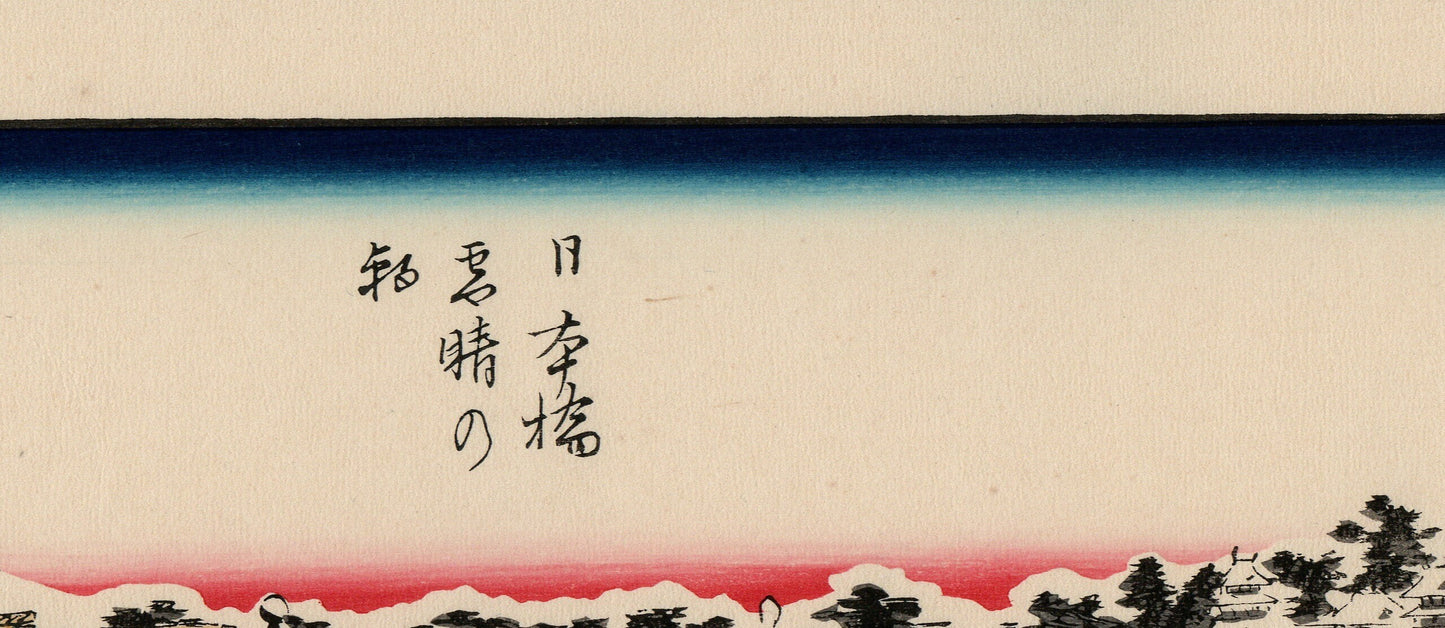 日本橋
雪晴の
朝